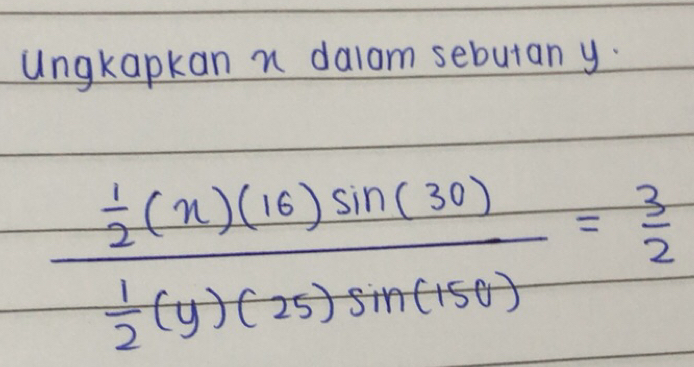 Ungkapkan x dalam sebutan y.
½(x)(16) sin(30) = 3/2
½(y)(25) sin(150)